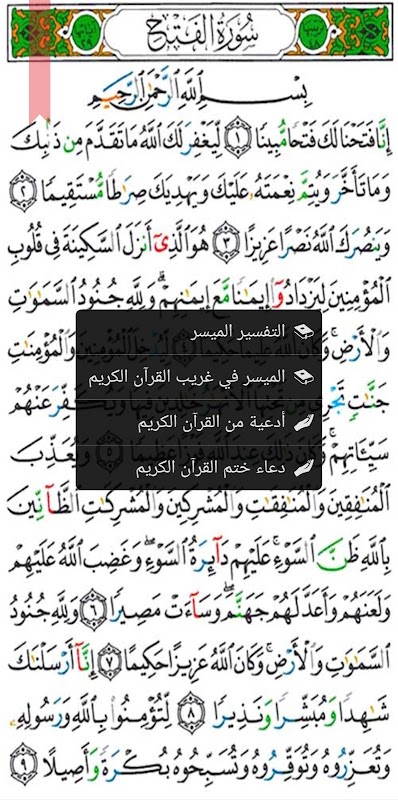 سُورَةُ الْفَتْحِ
بِسْمِ اللَّهِ الرَّحْمَٰنِ الرَّحِيمِ
إِنَّا فَتَحْنَا لَكَ فَتْحًا مُّبِينًا ١ لِّيَغْفِرَ لَكَ اللَّهُ مَا تَقَدَّمَ مِن ذَنۢبِكَ
وَمَا تَأَخَّرَ وَيُتِمَّ نِعْمَتَهُۥ عَلَيْكَ وَيَهْدِيَكَ صِرَٰطًا مُّسْتَقِيمًا ٢
وَيَنصُرَكَ اللَّهُ نَصْرًا عَزِيزًا ٣ هُوَ الَّذِىٓ أَنزَلَ السَّكِينَةَ فِى قُلُوبِ
الْمُؤْمِنِينَ لِيَزْدَادُوٓا۟ إِيمَٰنًا مَّعَ إِيمَٰنِهِمْ ۗ وَلِلَّهِ جُنُودُ السَّمَٰوَٰتِ
وَالْأَرْضِ ۚ وَكَانَ اللَّهُ عَلِيمًا حَكِيمًا
التفسير الميسر
وَالْمُؤْمِنَٰتِ
الميسر في غريب القرآن الكريم
جَنَّٰتٍ تَجْرِى
عَنْهُمْ
أدعية من القرآن الكريم
سَيِّـَٔاتِهِمْ ۚ وَكَانَ ذَٰلِكَ عِندَ اللَّهِ فَوْزًا عَظِيمًا ٥ وَيُعَذِّبَ
دعاء ختم القرآن الكريم
الْمُنَٰفِقِينَ وَالْمُنَٰفِقَٰتِ وَالْمُشْرِكِينَ وَالْمُشْرِكَٰتِ الظَّآنِّينَ
بِاللَّهِ ظَنَّ السَّوْءِ ۚ عَلَيْهِمْ دَآئِرَةُ السَّوْءِ ۖ وَغَضِبَ اللَّهُ عَلَيْهِمْ
وَلَعَنَهُمْ وَأَعَدَّ لَهُمْ جَهَنَّمَ ۖ وَسَآءَتْ مَصِيرًا ٦ وَلِلَّهِ جُنُودُ
السَّمَٰوَٰتِ وَالْأَرْضِ ۚ وَكَانَ اللَّهُ عَزِيزًا حَكِيمًا ٧ إِنَّآ أَرْسَلْنَٰكَ
شَٰهِدًا وَمُبَشِّرًا وَنَذِيرًا ٨ لِّتُؤْمِنُوا۟ بِاللَّهِ وَرَسُولِهِۦ
وَتُعَزِّرُوهُ وَتُوَقِّرُوهُ وَتُسَبِّحُوهُ بُكْرَةً وَأَصِيلًا ٩